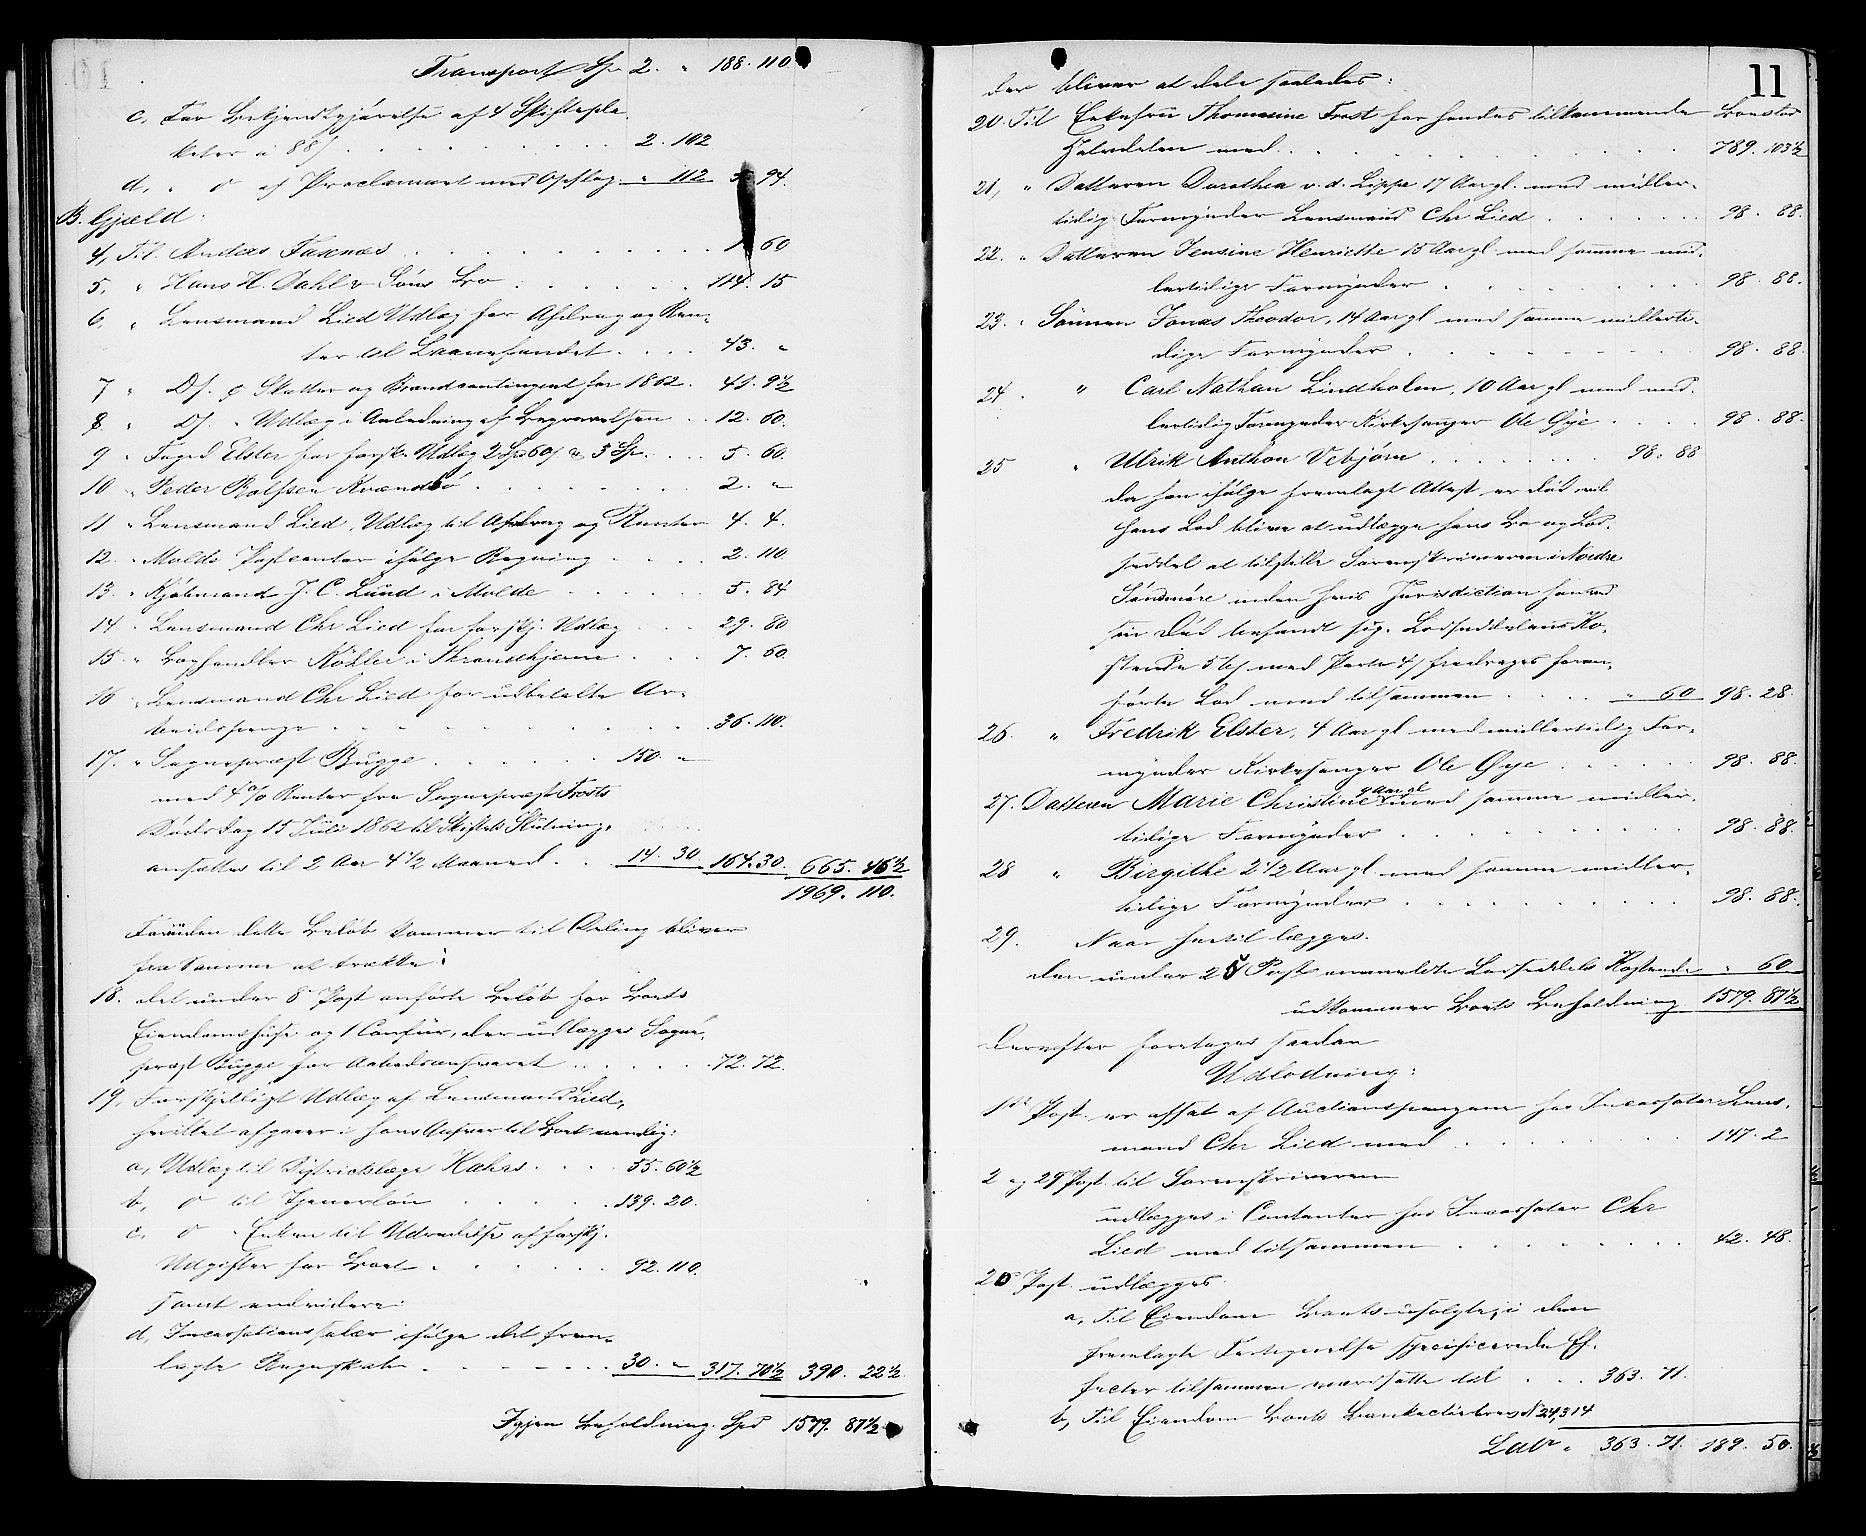 Transport Sp 2. " 188. 110
c, For Bekjendtgjørelse af 4 Skiftepla
keter a 88 s 2. 102
d, " o af Proclamaet med Opslag " 112 94.
B. Gjæld:
4, Til Anders Farnæs 60
5, " Hans H. Dahl & Søns Bo 114. 15
6, " Lensmand Lied Udlæg for Afdrag og Ren-
ter til Laanefondet 43. "
7 " Ds. " Skatter og Brandcontingent for 1862. 41. 9½
8 " Ds. " Udlæg i Anledning af Begravelsen 12. 60.
9 " Foged Elster for forsk. Udlæg 2 Spd 60 s & 3 Sp. 5. 60.
10 " Peder Rolfsen Kvændbø 2. "
11 " Lensmand Lied, Udlæg til Afdrag og Renter 4. 4.
12. " Molde Postcontor ifølge Regning 2. 110
13. " Kjøbmand J. C. Lund i Molde 5. 84
14 " Lensmand Chr Lied for forskj. Udlæg 29. 80
15. " Boghandler Köhler i Throndhjem 7. 60.
16 " Lensmand Chr Lied for udbetalte Ar-
beidspenge 36. 110.
17. " Sognepræst Bugge 150. "
med 4 % Renter fra Sognepræst Frosts
Dødsdag 15 Juli 1862 til Skiftets Slutning,
ansættes til 2 Aar 4½ Maaned 14. 30 164. 30. 665. 46½
1969. 110.
Forinden dette Beløb kommer til Deling bliver
fra samme at trække:
18. det under 8 Post anførte Beløb for Boets
Eiendomshuse og 1 Comfur, der udlægges Sogne-
præst Bugge for Aabodsansvaret 72. 72.
19, Forskjelligt Udlæg af Lensmand Lied,
hvilket afgaaer i hans Ansvar til Boet nemlig:
a, Udlæg til Districtslæge Kahrs 55. 60½
b, o til Tjenerløn 139. 20.
c, o " Enken til Udredelse af forskj.
Udgifter for Boet 92. 110.
samt endvidere:
d, Incassationssalær ifølge det frem-
lagte Regnskab 30. " 317. 70½ 390. 22½
Igjen Beholdning Spd 1579. 87½
11
der bliver at dele saaledes:
20. Til Enkefru Thomasine Frost for hendes tilkommende Boeslod
Halvdelen med 789. 103½
21, " Datteren Dorothea v. d. Lippe 17 Aar gl. med midler-
tidig Formynder Lensmand Chr Lied 98. 88.
22. " Datteren Jensine Henriette 15 Aar gl med samme mid-
lertidige Formynder 98. 88.
23. " Sønnen Jonas Theodor, 14 Aar gl med samme midlerti-
dige Formynder 98. 88.
24 " Carl Nathan Lindholm, 10 Aar gl med mid-
lertidig Formynder Kirkesanger Ole Øye 98. 88.
25 " Ulrik Anthon Vebjørn 98. 88
Da han ifølge fremlagt Attest er død, vil
hans Lod blive at udlægge hans Bo og Lod-
seddel at tilstille Sorenskriveren i Nordre
Søndmøre under hvis Jurisdiction han ved
sin Død befandt sig. Lodseddelens Ko-
stende 56 s med Porto 4 s fradrages foran-
førte Lod med tilsammen " 60 98. 28.
26. " Fredrik Elster, 4 Aar gl med midlertidig For-
mynder Kirkesanger Ole Øye 98. 88.
27. Datteren Marie Christine 9 Aar gl med samme midler-
tidige Formynder 98. 88.
28 " Birgithe 2½ Aar gl. med samme midler-
tidige Formynder 98. 88.
29. Naar hertil lægges.
den under 25 Post ommeldte Lodseddels Kostende " 60
udkommer Boets Beholdning 1579. 87½
Derefter foretages saadan
Udlodning:
1ste Post er afsat af Auctionspengene hos Incassator Lens-
mand Chr Lied med 147. 2
2 og 29 Post til Sorenskriveren
udlægges i Contanter hos Incassator Chr
Lied med tilsammen 42. 48.
20 Post udlægges
a, Til Eiendom Boets usolgte, i den
fremlagte Fortegnelse specificerede Ef-
fecter tilsammen værdsatte til 363. 71.
b, Til Eiendom Boets Bankactiebrev N 24,314
Lat " 363. 71. 189. 50.